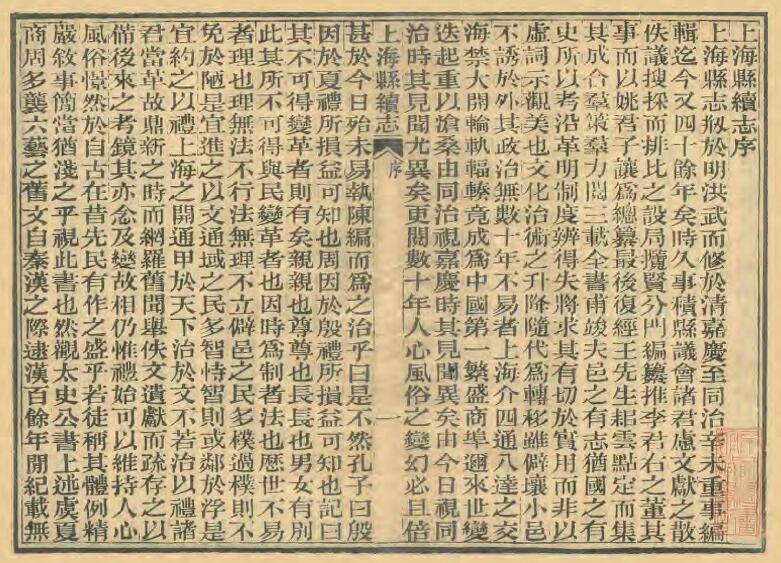 上海縣續志序
上海縣志剏於明洪武而修於清嘉慶至同治辛未重事編
輯迄今又四十餘年矣時久事積縣議會諸君慮文獻之散
佚議搜採而排比之設局攬賢分門編纂推李君右之董其
事而以姚君子讓爲總纂最後復經王先生耜雲點定而集
其成合羣策羣力閱三載全書甫竣夫邑之有志猶國之有
史所以考沿革明制度辨得失將求其有切於實用而非以
虛詞示觀美也文化治術之升降隨代爲轉移雖僻壤小邑
不誘於外其政治無數十年不易者上海介四通八達之交
海禁大開輪軌輻輳竟成爲中國第一繁盛商埠邇來世變
迭起重以滄桑由同治視嘉慶時其見聞異矣由今日視同
治時其見聞尤異矣更閱數十年人心風俗之變幻必且倍
上海縣續志 序 一
甚於今日殆未易執陳編而爲之治乎曰是不然孔子曰殷
因於夏禮所損益可知也周因於殷禮所損益可知也記曰
其不可得變革者則有矣親親也尊尊也長長也男女有別
此其所不可得與民變革者也因時爲制者法也歷世不易
者理也理無法不行法無理不立僻邑之民多樸過樸則不
免於陋是宜進之以文通域之民多智恃智則或鄰於浮是
宜約之以禮上海之開通甲於天下治於文不若治以禮諸
君當革故鼎新之時而網羅舊聞舉佚文遺獻而疏存之以
備後來之考鏡其亦念及變故相仍惟禮始可以維持人心
風俗憬然於自古在昔先民有作之盛乎若徒稱其體例精
嚴敘事簡當猶淺之乎視此書也然觀太史公書上述虞夏
商周多襲六藝之舊文自秦漢之際逮漢百餘年閒紀載無